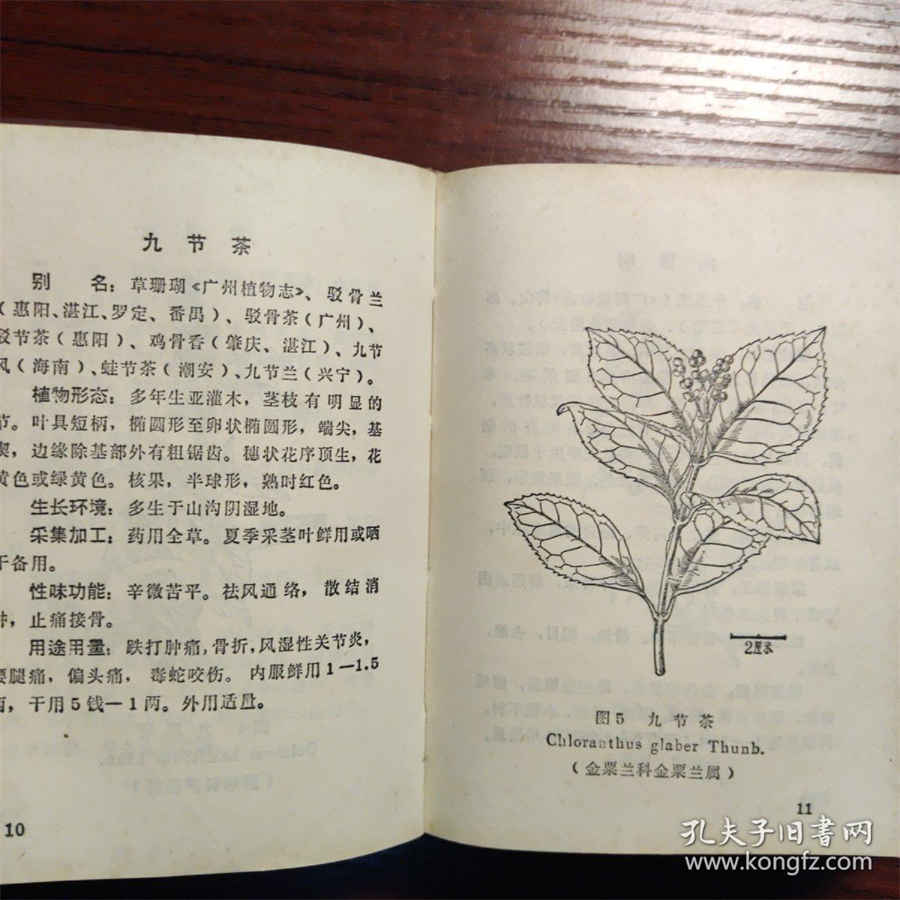 九节茶
别 名：草珊瑚《广州植物志》、驳骨兰
（惠阳、湛江、罗定、番禺）、驳骨茶（广州）、
驳节茶（惠阳）、鸡骨香（肇庆、湛江）、九节
风（海南）、蛙节茶（潮安）、九节兰（兴宁）。
植物形态：多年生亚灌木，茎枝有明显的
节。叶具短柄，椭圆形至卵状椭圆形，端尖，基
楔，边缘除基部外有粗锯齿。穗状花序顶生，花
黄色或绿黄色。核果，半球形，熟时红色。
生长环境：多生于山沟阴湿地。
采集加工：药用全草。夏季采茎叶鲜用或晒
干备用。
性味功能：辛微苦平。祛风通络，散结消
肿，止痛接骨。
用途用量：跌打肿痛，骨折，风湿性关节炎，
腰腿痛，偏头痛，毒蛇咬伤。内服鲜用1—1.5
两，干用5钱—1两。外用适量。
10
2厘米
图5 九节茶
Chloranthus glaber Thunb.
（金粟兰科金粟兰属）
11
孔夫子旧书网
www.kongfz.com